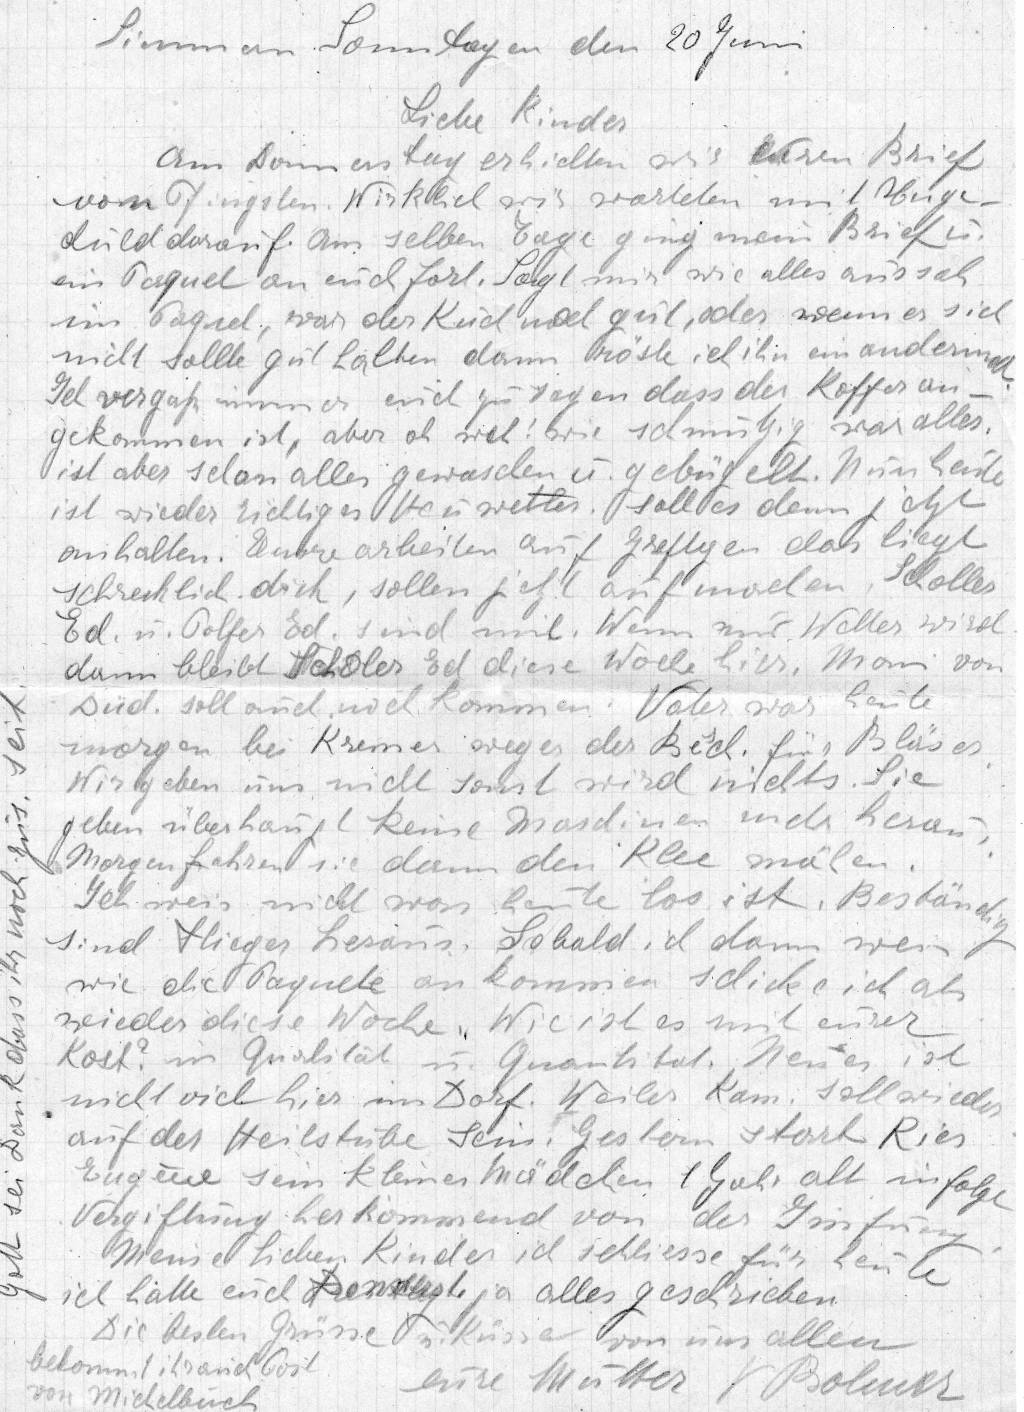 Simmern Sonntagen den 20 Juni
Liebe Kinder
Am Donnerstag erhielten wir Euren Brief
vom Pfingsten. Wirklich wir warteten mit Unge-
duld darauf. Am selben Tage ging mein Brief u.
ein Paquet an euch fort. Sagt mir wie alles aussah
im Paquet, war der Kuch noch gut, oder wenn er sich
nicht sollte gut halten dann röste ich ihn ein andermal.
Ich vergass immer euch zu sagen dass der Koffer an-
gekommen ist, aber oh weh! wie schmutzig war alles.
ist aber schon alles gewaschen u. gebügelt. Nun heute
ist wieder richtiges Heuwetter. soll es denn jetzt
anhalten. Unsre arbeiten auf das liegt
schrecklich dick, sollen jetzt aufmachen. Scholler
Ed. u. Polfer Ed. sind mit. Wenn nur Wetter wird
dann bleibt Scholer Ed diese Woche hier. Moni von
Düd. soll auch noch kommen. Vater war heute
morgen bei Kremer wegen der Besch. für Bläser.
Wir geben uns nicht sonst wird nichts. Sie
geben überhaupt keine Maschinen mehr heraus.
Morgen fahren sie dann den Klee mähen.
Ich weis nicht was heute los ist. Beständig
sind Flieger heraus. Sobald ich dann weis
wie die Paquete ankommen schicke ich ab
wieder diese Woche. Wie ist es mit eurer
Kost? in Qualität u. Quantitat. Neues ist
nicht viel hier im Dorf. Weiler Kam. soll wieder
auf der Heilstube sein. Gestern starb Ries
Eugène sein kleines Mädchen 1 Jahr alt infolge
Vergiftung herkommend von der Impfung.
Meine lieben Kinder ich schliesse für heute
ich hatte euch ja alles geschrieben
Die besten Grüsse u. Küsse von uns allen
eure Mutter V Bolmer
bekommt ihr auch Post
von Michelbuch
Gott sei Dank dass ihr noch zus. seit.